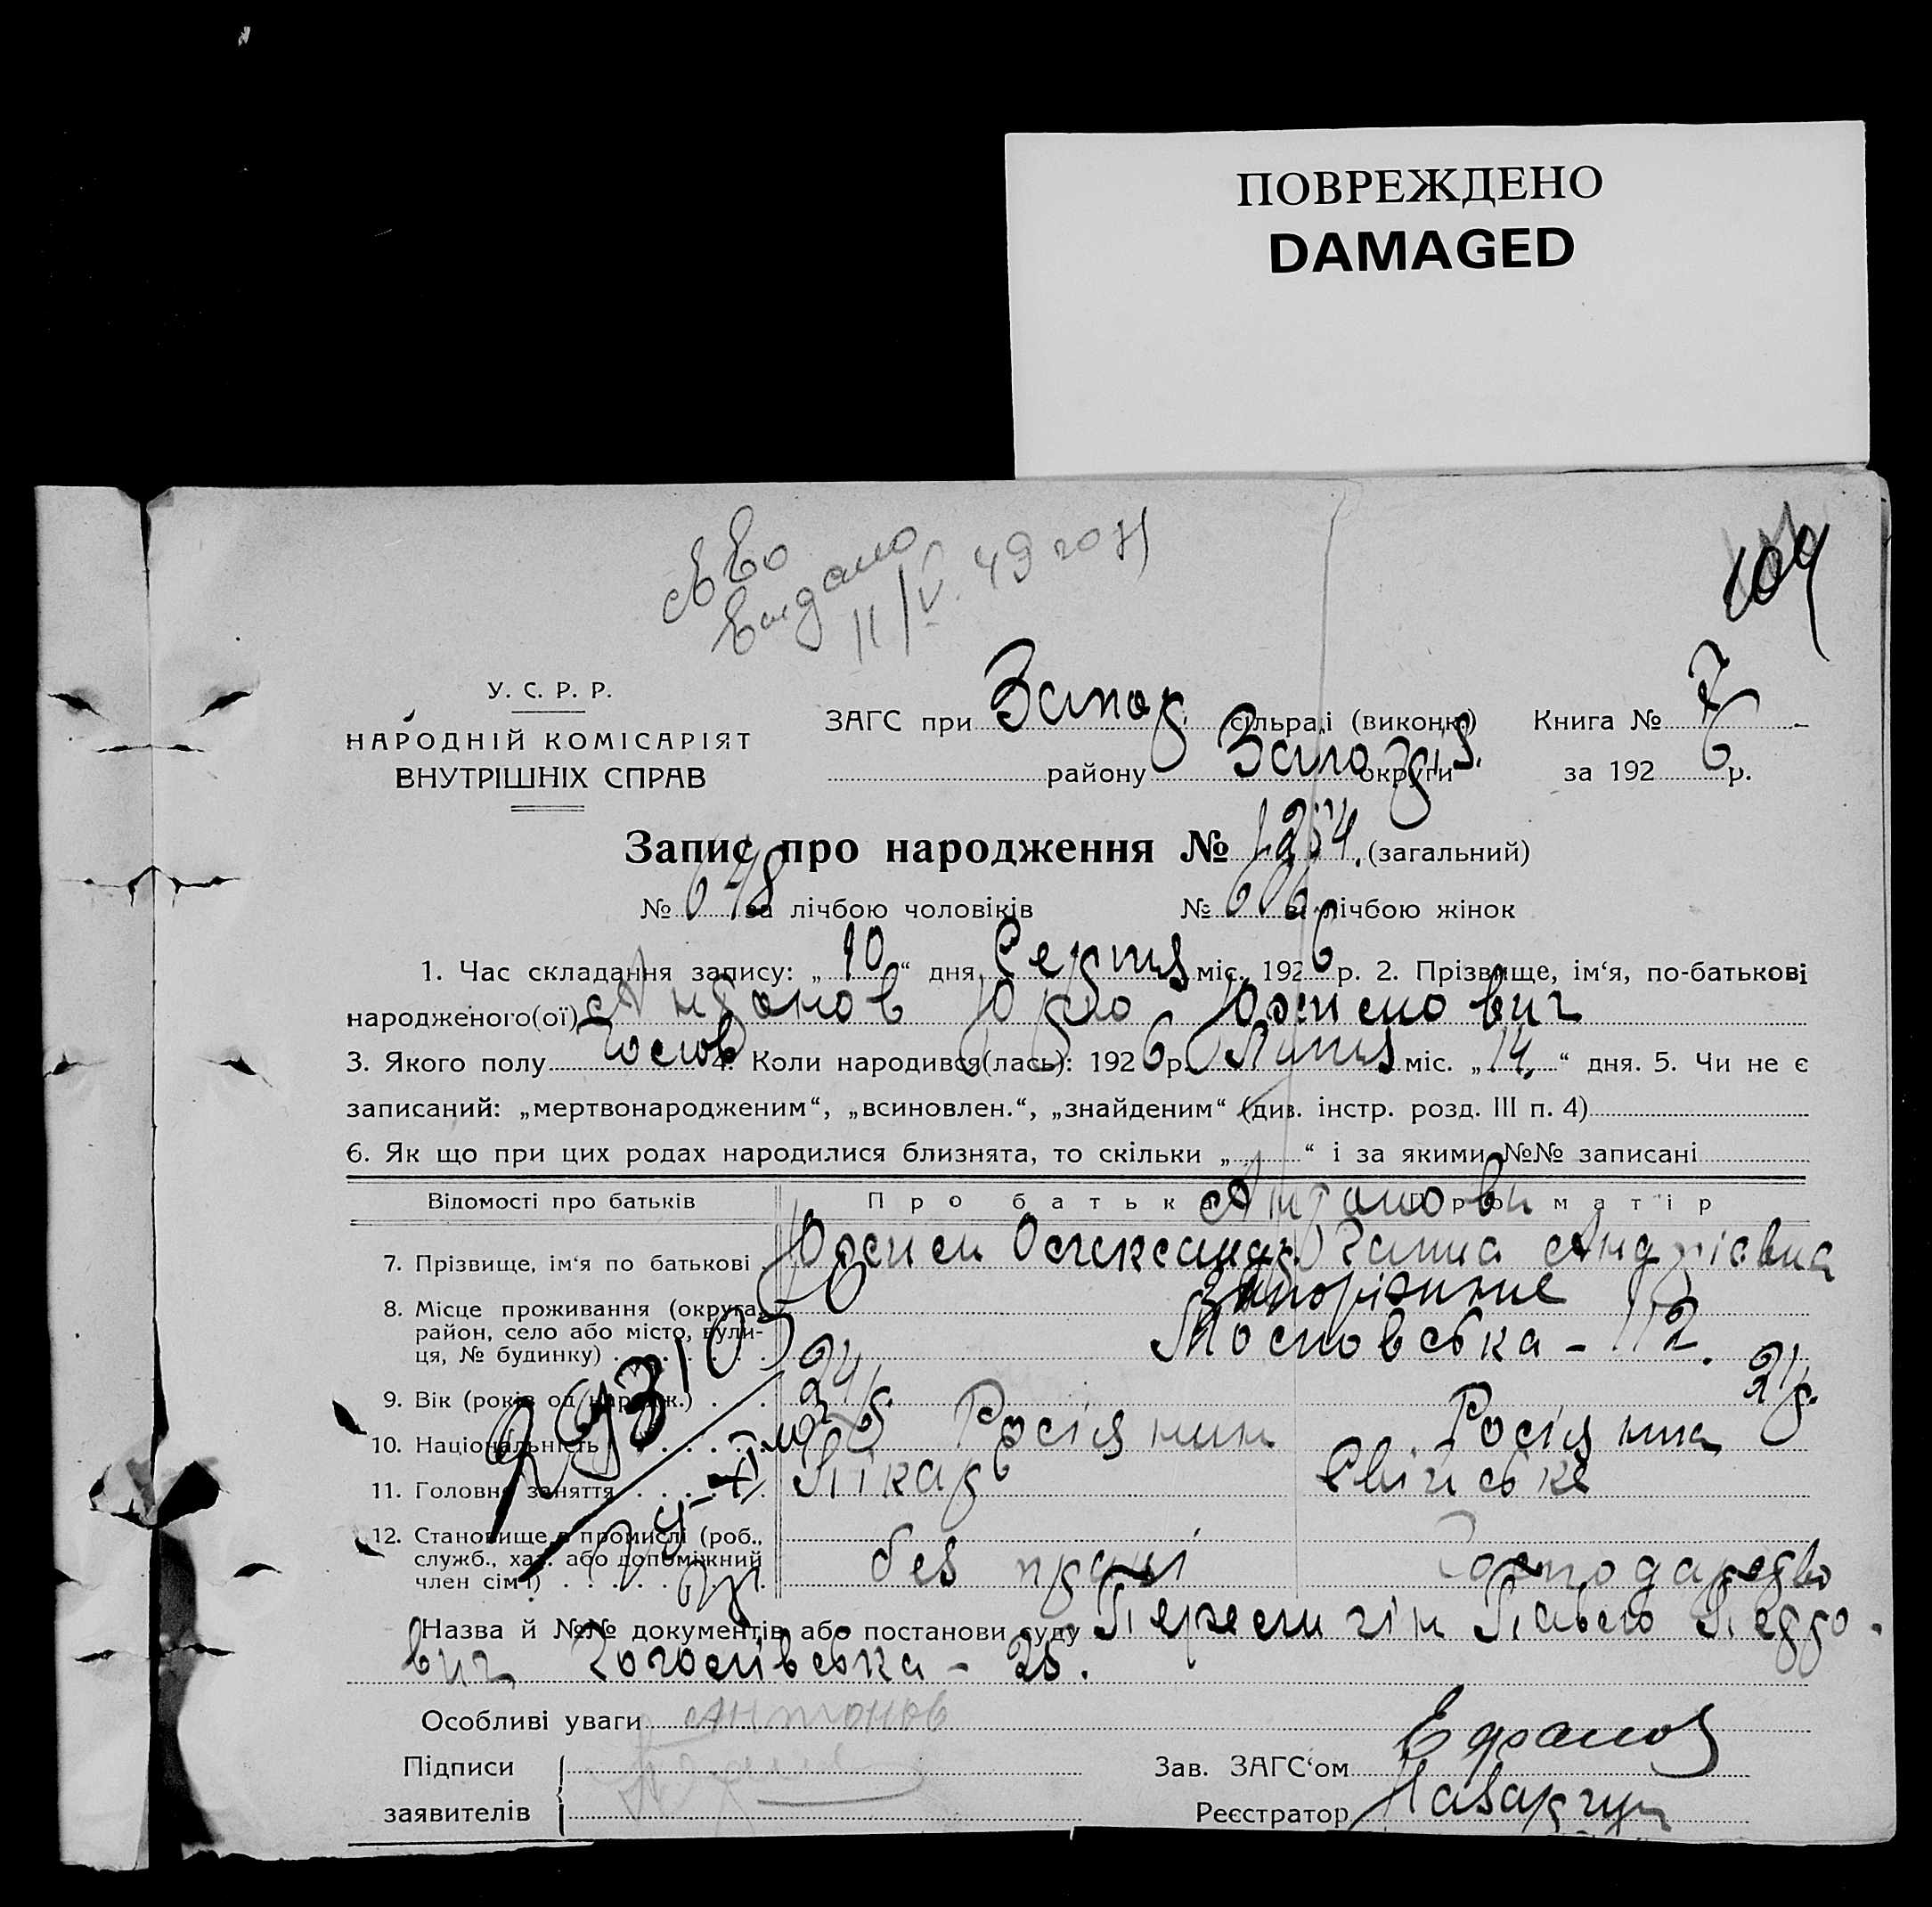 ПОВРЕЖДЕНО
DAMAGED
видано
11/V. 49 году
104
У. С. Р. Р.
НАРОДНІЙ КОМІСАРІЯТ
ВНУТРІШНІХ СПРАВ
ЗАГС при Запор. сільраді (виконк.) Книга № 7
району Запоріз. округи за 1926 р.
Запис про народження № 1254. (загальний)
№ 648 за лічбою чоловіків № 606 за лічбою жінок
1. Час складання запису: „10“ дня Серпня міс. 1926 р. 2. Прізвище, ім‘я, по-батькові
народженого(ої) Антонов Юхимович
3. Якого полу Чолов 4. Коли народився(лась): 1926 р. Липня міс. „14.“ дня. 5. Чи не є
записаний: „мертвонародженим“, „всиновлен.“, „знайденим“ (див. інстр. розд. III п. 4)
6. Як що при цих родах народилися близнята, то скільки „ “ і за якими №№ записані
Відомості про батьків Про батька Про матір
Антонови
7. Прізвище, ім‘я по батькові Юхим Олександр. Ганна Андріївна
8. Місце проживання (округа, район, село або місто, вулиця, № будинку) Запоріжжє
Московська - 112.
9. Вік (років од народж.) 24 р. 21 р.
10. Національність Росіянин Росіянка
11. Головне заняття Пікарь Свійське
12. Становище в промислі (роб., служб., хаз. або допоміжний член сім‘ї) без праці Господарство
Назва й №№ документів або постанови суду Павло Педро-
вич - 25.
Особливі уваги Антонов
Підписи
заявителів
Зав. ЗАГС‘ом
Реєстратор